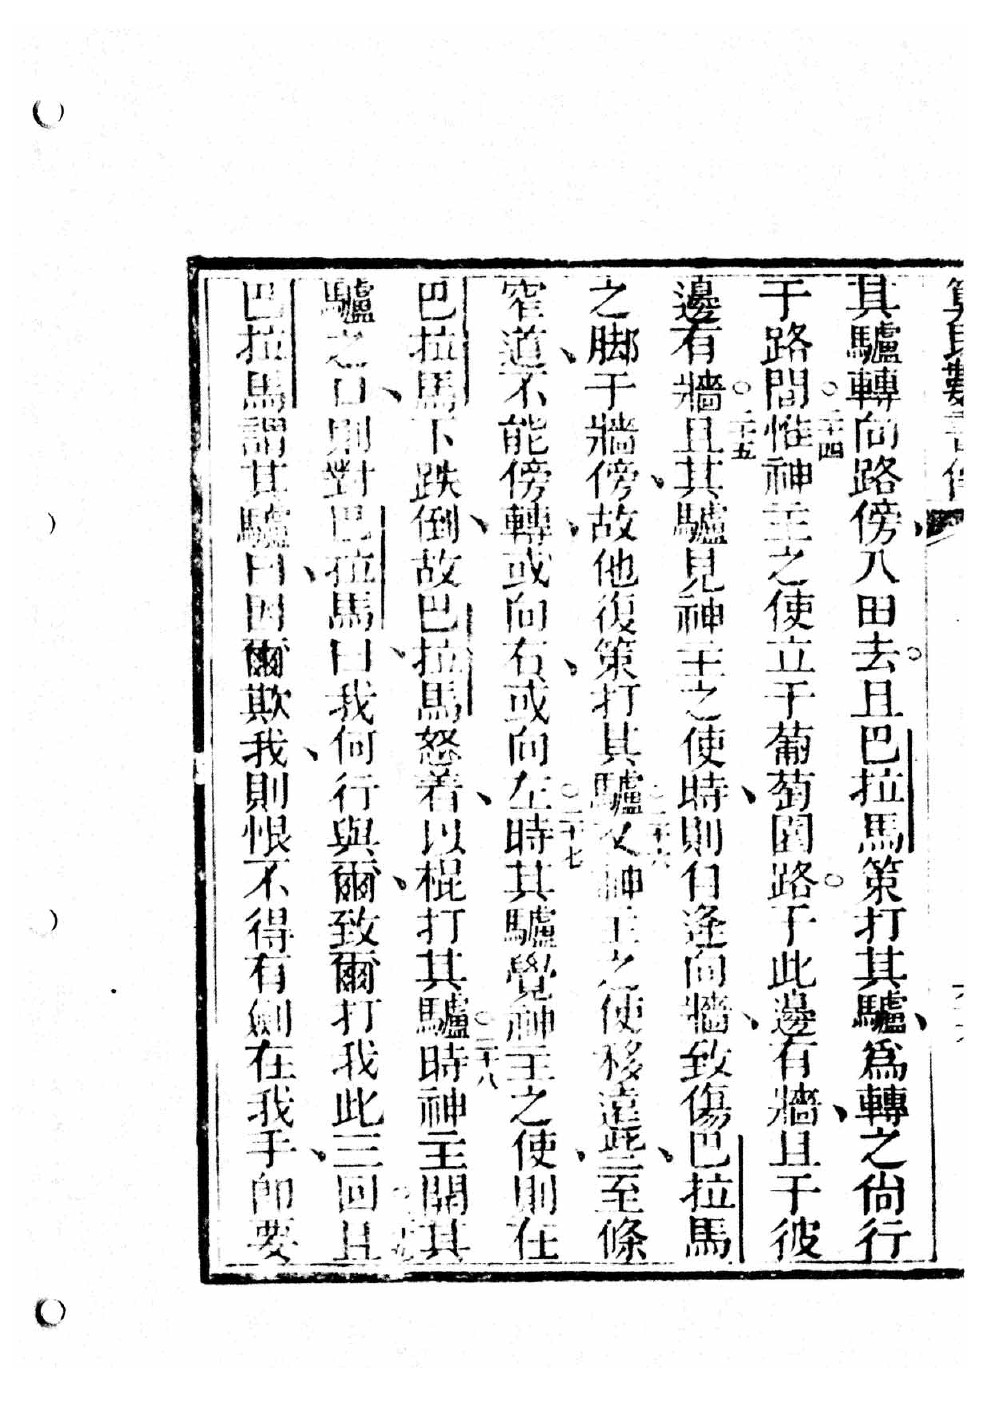 其驢轉向路傍入田去。且巴拉馬策打其驢、爲轉之尙行
于路間。二十四惟神主之使立于葡萄園路。于此邊有牆、且于彼
邊有牆。二十五且其驢見神主之使時、則自逄向牆、致傷巴拉馬
之脚于牆傍、故他復策打其驢。二十六又神主之使移遠些、至條
窄道、不能傍轉、或向右、或向左。二十七時其驢覺神主之使、則在
巴拉馬下跌倒、故巴拉馬怒着、以棍打其驢。二十八時神主開其
驢之口、則對巴拉馬曰、我何行與爾、致爾打我此三回。且
巴拉馬謂其驢曰、因爾欺我、則恨不得有劍在我手、卽要